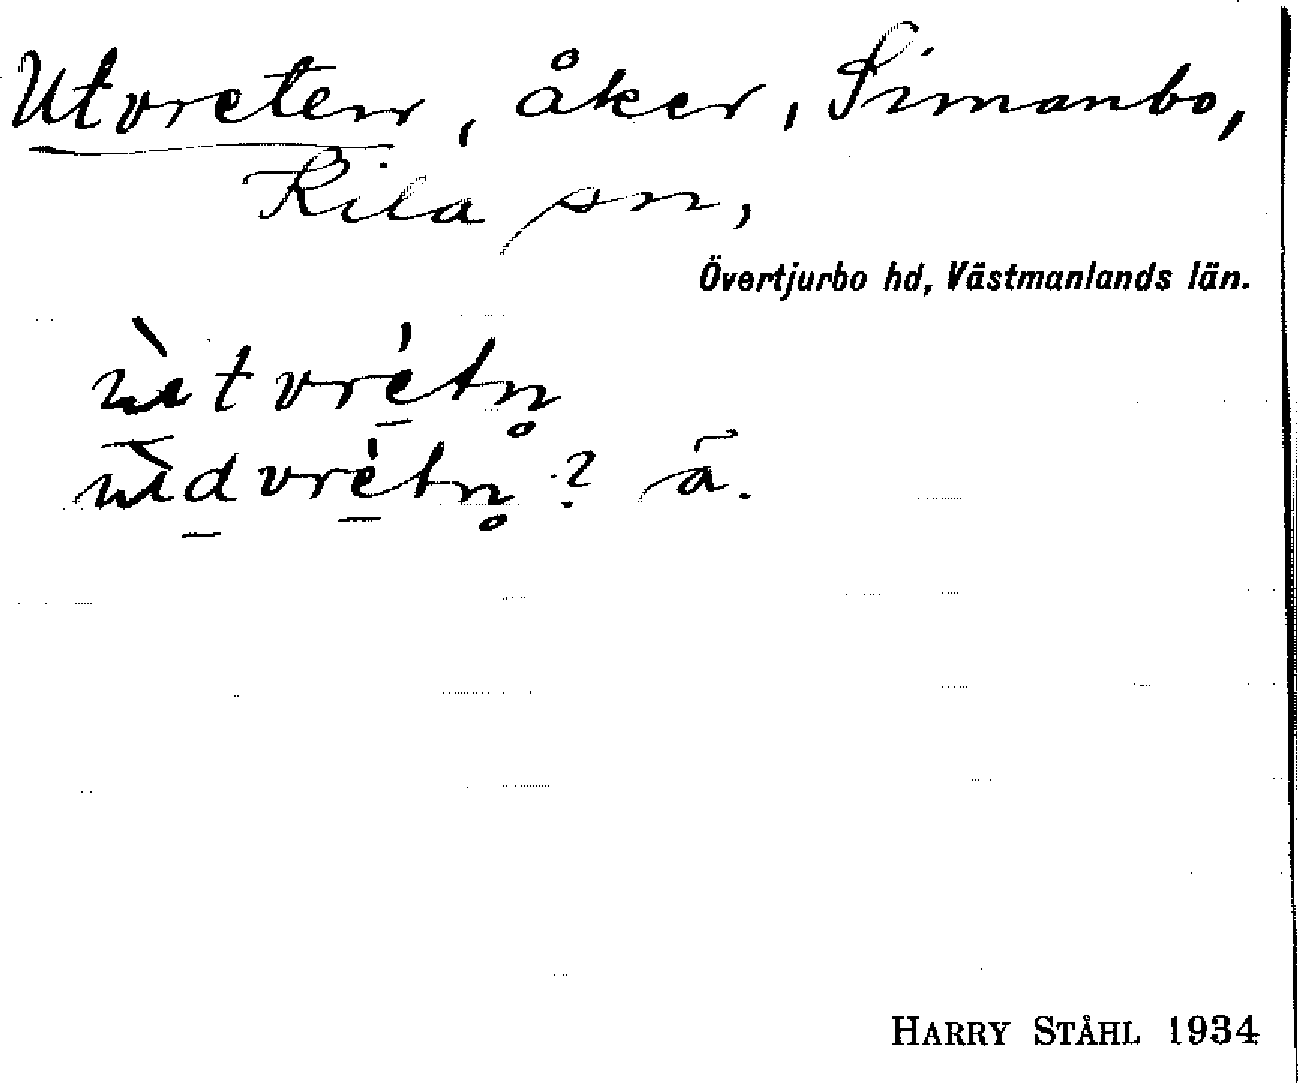 Utvreten, åker, Simanbo,
Kila sn,
Övertjurbo hd, Västmanlands län.
ùtvrétn̥
ùdvrétn̥? ā.
HARRY STÅHL 1934